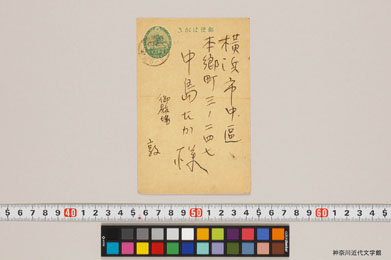 郵便はがき
横浜市中區
本郷町三ノ二四七
中島たか様
御殿場
敦
5 6 7 8 9 40 1 2 3 4 5 6 7 8 9 50 1 2 3 4 5 6 7 8 9 60 1 2 3 4 5
神奈川近代文学館